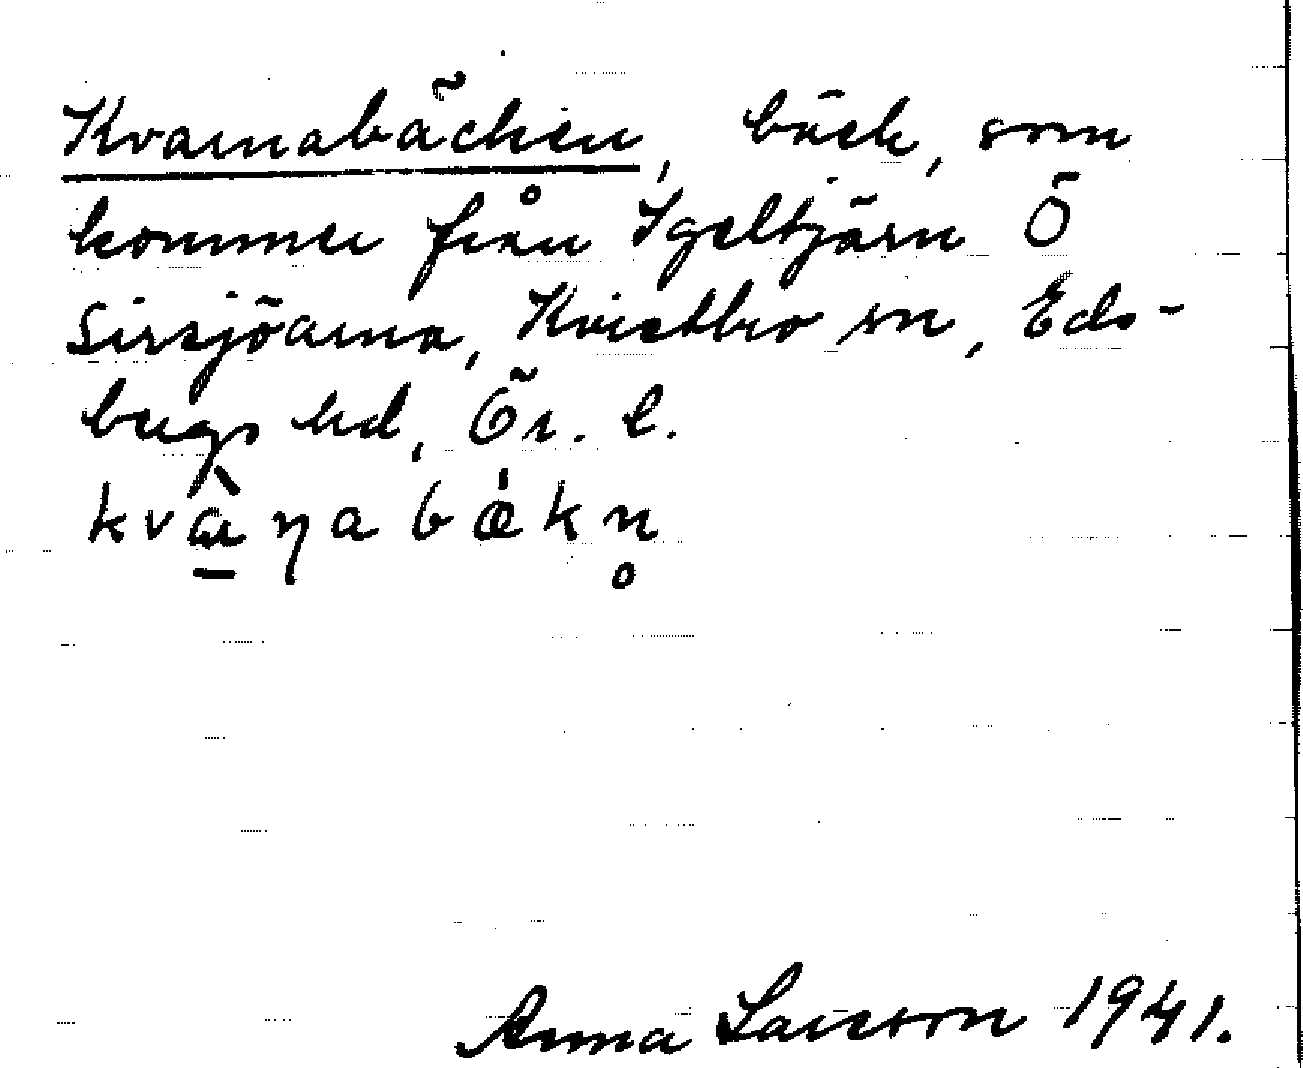 Kvarnabäcken, bäck, som
kommer från Igeltjärn Ö
Sirsjöarna, Kvistbro sn, Eds-
bergs hd, Ör. l.
Anna Larsson 1941.